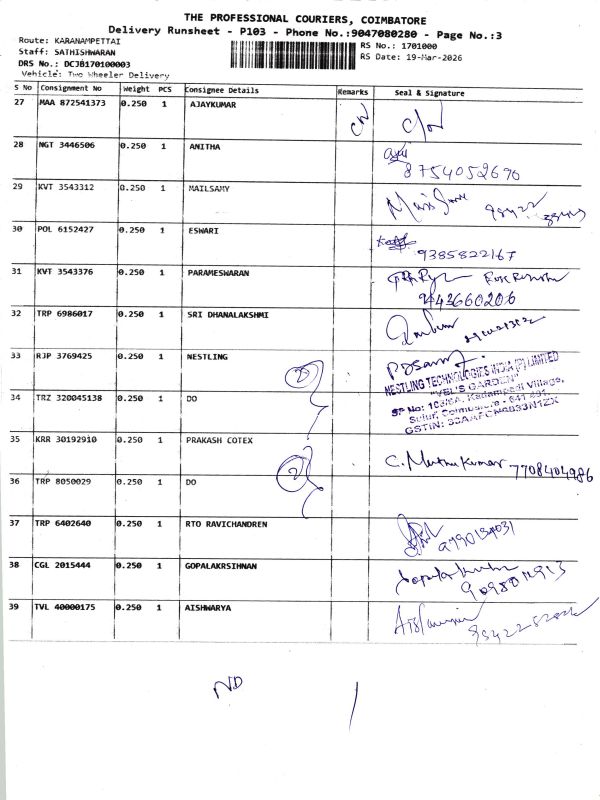 THE PROFESSIONAL COURIERS, COIMBATORE
Delivery Runsheet - P103 - Phone No.:9047080280 - Page No.:3
Route: KARANAMPETTAI
RS No.: 1701000
Staff: SATHISHWARAN
RS Date: 19-Mar-2026
DRS No.: DCJB170100003
Vehicle: Two Wheeler Delivery
S No Consignment No Weight PCS Consignee Details Remarks Seal & Signature
27 MAA 872541373 0.250 1 AJAYKUMAR
28 NGT 3446506 0.250 1 ANITHA
8754052690
29 KVT 3543312 0.250 1 MAILSAMY
30 POL 6152427 0.250 1 ESWARI
9385822167
31 KVT 3543376 0.250 1 PARAMESWARAN
9443660206
32 TRP 6986017 0.250 1 SRI DHANALAKSHMI
33 RJP 3769425 0.250 1 NESTLING
2
NESTLING TECHNOLOGIES INDIA (P) LIMITED
"VEL'S GARDEN"
SF No: 103/6A, Kadampadi Village,
Sulur, Coimbatore - 641 401.
34 TRZ 320045138 0.250 1 DO
35 KRR 30192910 0.250 1 PRAKASH COTEX
C. Muthu Kumar 7708404986
2
36 TRP 8050029 0.250 1 DO
37 TRP 6402640 0.250 1 RTO RAVICHANDREN
38 CGL 2015444 0.250 1 GOPALAKRSIHNAN
39 TVL 40000175 0.250 1 AISHWARYA
ND